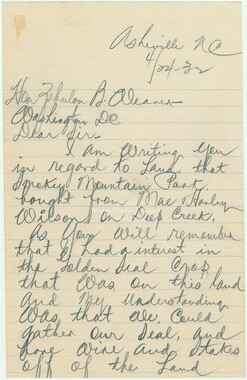 Asheville NC
4/24-32
Hon Zebulon B. Weaver
Washington DC
Dear Sir-
I am Writing You
in regard to Land, that
Smokey Mountain Park
bought from Mac Hanley
Wilson on Deep Creek,
As You Will remember
that I had a interest in
the Golden Seal Crop
that Was on this land
and My Understanding
Was that We, Could
gather Our Seal, and
hope Wire and Stakes
off of the Land